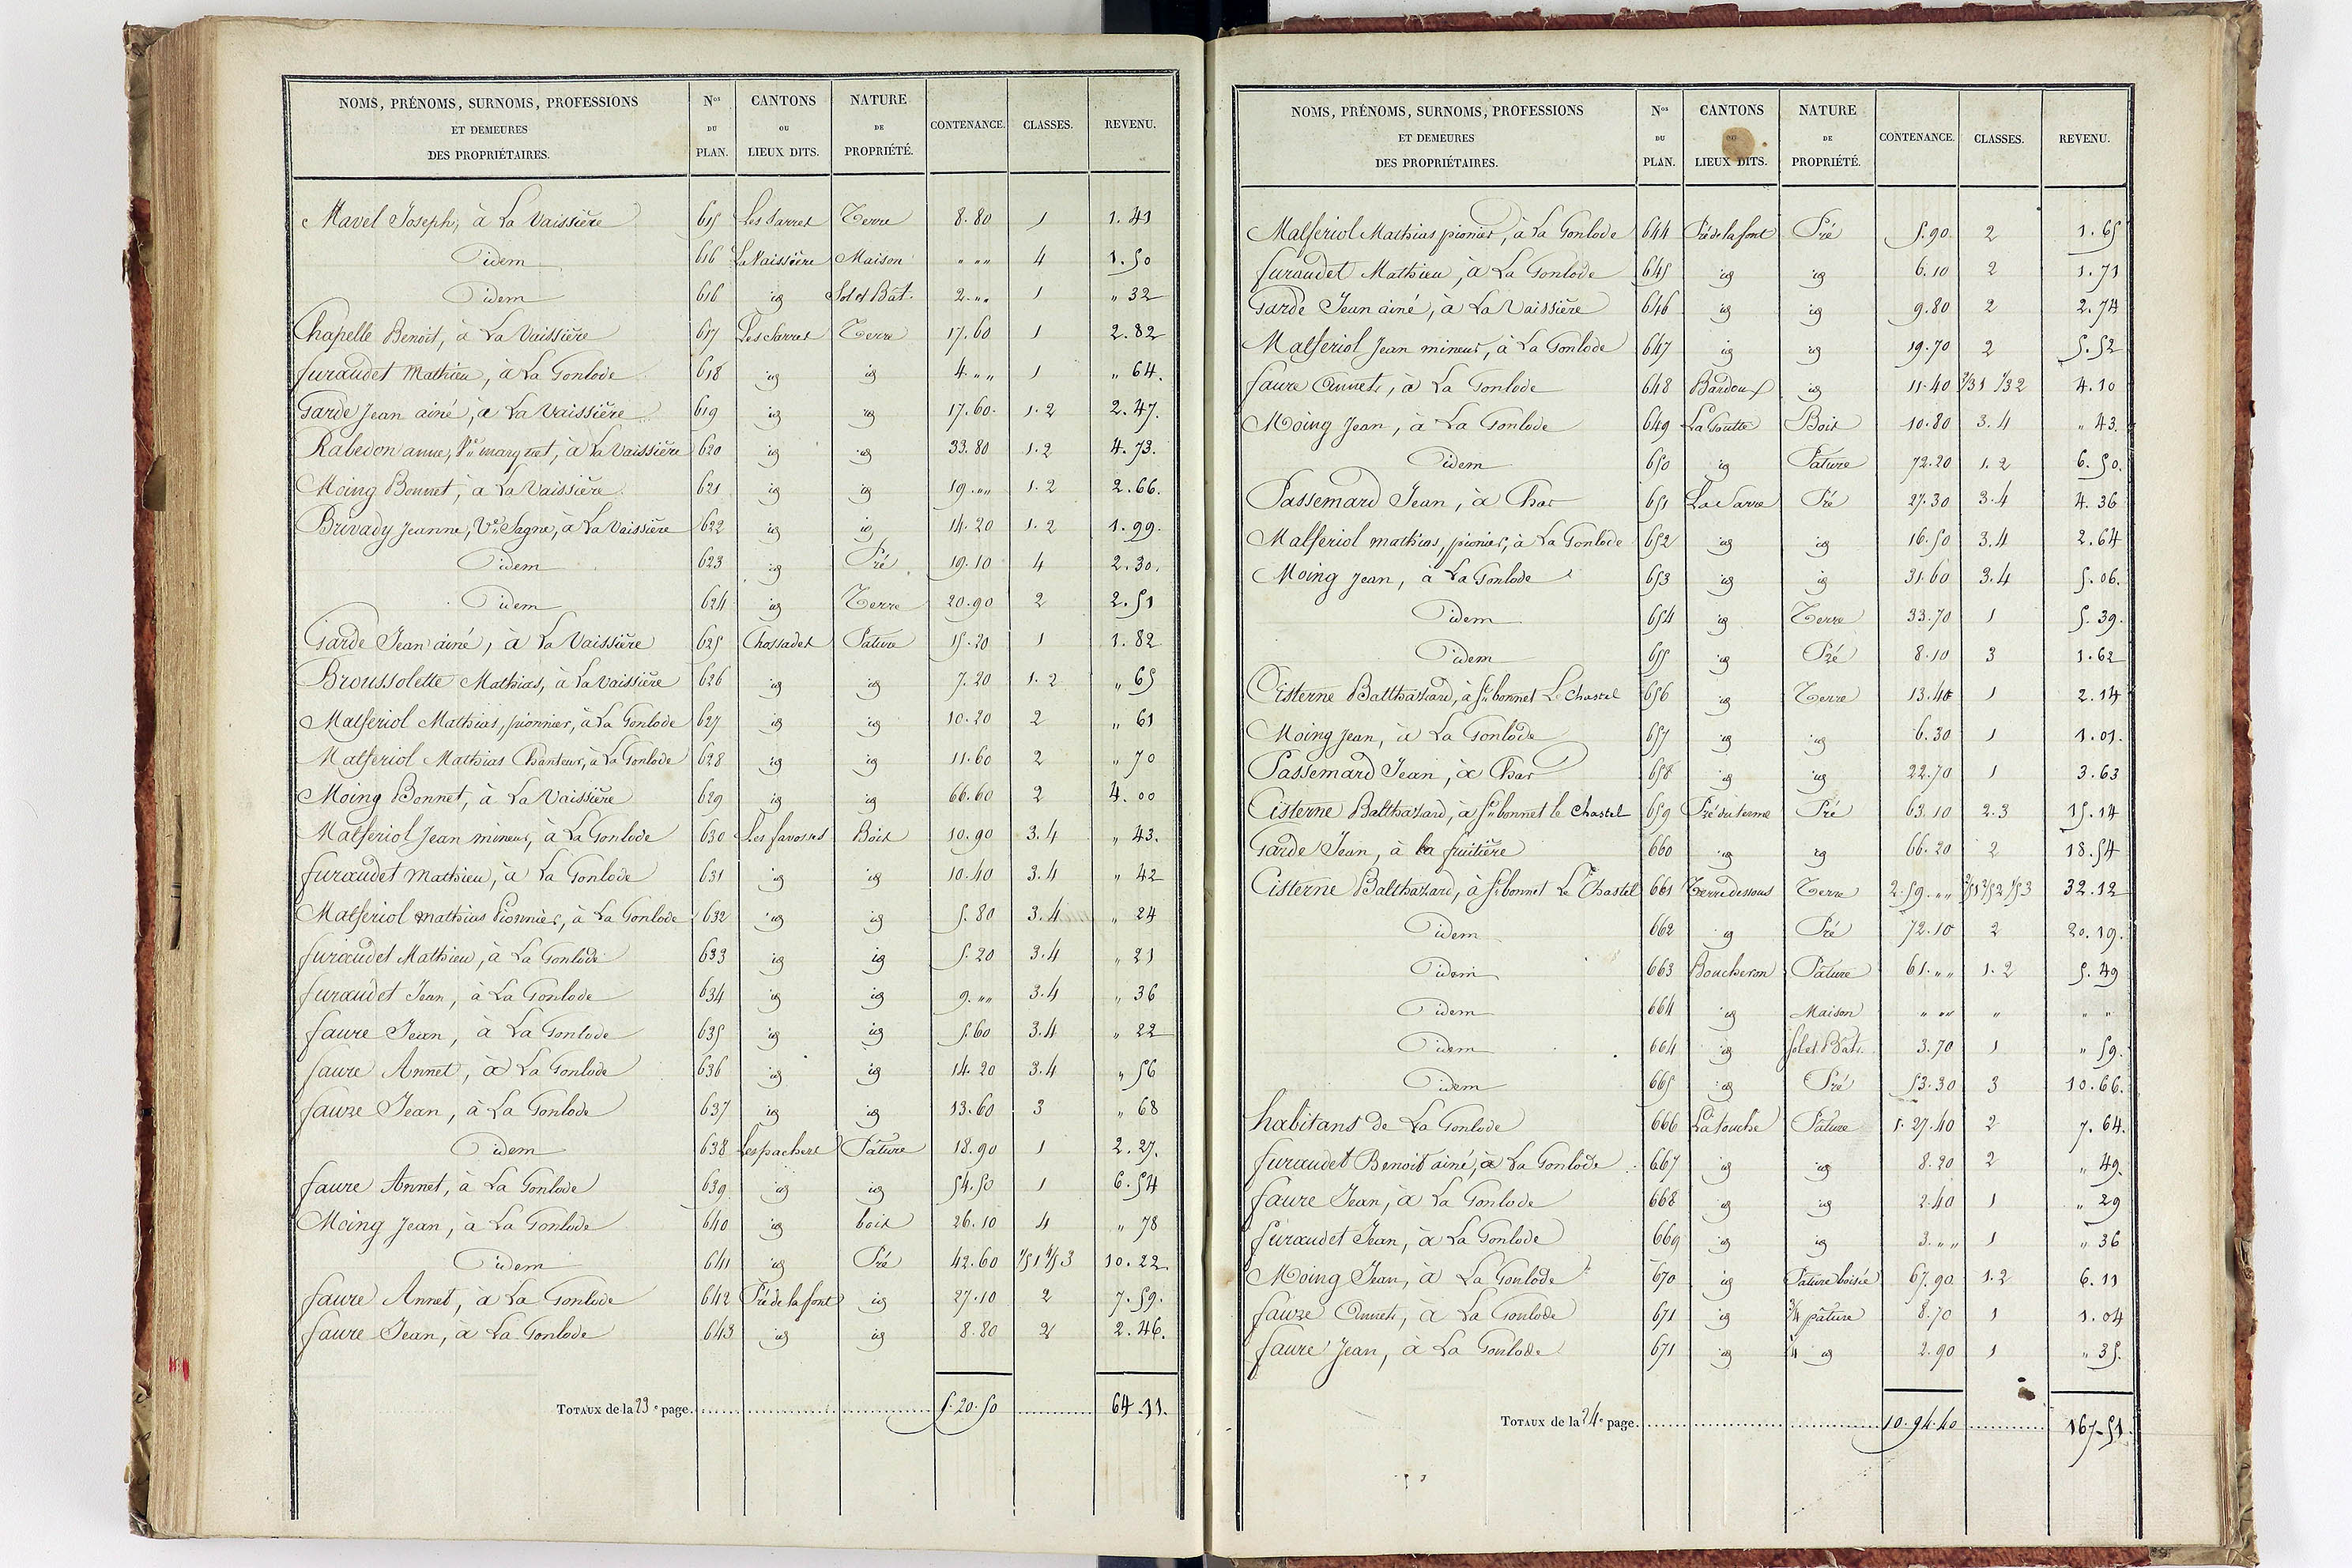 NOMS, PRÉNOMS, SURNOMS, PROFESSIONS ET DEMEURES DES PROPRIÉTAIRES. Nos DU PLAN. CANTONS OU LIEUX DITS. NATURE DE PROPRIÉTÉ. CONTENANCE. CLASSES. REVENU.
Mavel Joseph, à La Vaissière 615 Les Sarret Terre 8.80 1 1.41
idem 616 La Vaissière Maison " "" 4 1.50
idem 616 id Sol et Bât. 2."" 1 " 32
Chapelle Benoit, à La Vaissière 617 Les Sarret Terre 17.60 1 2.82
furaudet Mathieu, à La Gonlode 618 id id 4."" 1 " 64.
Garde Jean ainé, à La Vaissière 619 id id 17.60 1.2 2.47.
Rabedon anne, Ve à La Vaissière 620 id id 33.80 1.2 4.73.
Moing Bonnet, à La Vaissière 621 id id 19."" 1.2 2.66.
Brivady Jeanne, Ve Sagne, à La Vaissière 622 id id 14.20 1.2 1.99.
idem 623 id Pré 19.10 4 2.30.
idem 624 id Terre 20.90 2 2.51
Garde Jean ainé, à La Vaissière 625 Chossadet Pature 15.20 1 1.82
Broussolette Mathias, à La Vaissière 626 id id 7.20 1.2 " 65
Malferiol Mathias, pionnier, à La Gonlode 627 id id 10.20 2 " 61
Malferiol Mathias Chanteur, à La Gonlode 628 id id 11.60 2 " 70
Moing Bonnet, à La Vaissière 629 id id 66.60 2 4.00
Malferiol Jean mineur, à La Gonlode 630 Les favosses Bois 10.90 3.4 " 43.
furaudet Mathieu, à La Gonlode 631 id id 10.40 3.4 " 42
Malferiol Mathias Pionnier, à La Gonlode 632 id id 5.80 3.4 " 24
furaudet Mathieu, à La Gonlode 633 id id 5.20 3.4 " 21
furaudet Jean, à La Gonlode 634 id id 9."" 3.4 " 36
faure Jean, à La Gonlode 635 id id 5.60 3.4 " 22
faure Annet, à La Gonlode 636 id id 14.20 3.4 " 56
faure Jean, à La Gonlode 637 id id 13.60 3 " 68
idem 638 Les pachers Pâture 18.90 1 2.27.
faure Annet, à La Gonlode 639 id id 54.50 1 6.54
Moing Jean, à La Gonlode 640 id bois 26.10 4 " 78
idem 641 id Pré 42.60 1/5 1 4/5 3 10.22
faure Annet, à La Gonlode 642 Pré de la font id 27.10 2 7.59.
faure Jean, à La Gonlode 643 id id 8.80 2 2.46.
TOTAUX de la 23e page. 5.20.50 64.11.
NOMS, PRÉNOMS, SURNOMS, PROFESSIONS ET DEMEURES DES PROPRIÉTAIRES. Nos DU PLAN. CANTONS OU LIEUX DITS. NATURE DE PROPRIÉTÉ. CONTENANCE. CLASSES. REVENU.
Malferiol Mathias pionier, à La Gonlode 644 Pré de la font Pré 5.90 2 1.65
furaudet Mathieu, à La Gonlode 645 id id 6.10 2 1.71
Garde Jean ainé, à La Vaissière 646 id id 9.80 2 2.74
Malferiol Jean mineur, à La Gonlode 647 id id 19.70 2 5.52
faure Annet, à La Gonlode 648 Bardoux id 11.40 2/3 1 1/3 2 4.10
Moing Jean, à La Gonlode 649 La Goutte Bois 10.80 3.4 " 43.
idem 650 id Pature 72.20 1.2 6.50.
Passemard Jean, à Char 651 La Sarre Pré 27.30 3.4 4.36
Malferiol mathias, pionier, à La Gonlode 652 id id 16.50 3.4 2.64
Moing Jean, à La Gonlode 653 id id 31.60 3.4 5.06.
idem 654 id Terre 33.70 1 5.39.
idem 655 id Pré 8.10 3 1.62
Cisterne Balthazard, à St bonnet Le Chastel 656 id Terre 13.40 1 2.14
Moing Jean, à La Gonlode 657 id id 6.30 1 1.01.
Passemard Jean, à Char 658 id id 22.70 1 3.63
Cisterne Balthazard, à St bonnet le Chastel 659 Pré du terme Pré 63.10 2.3 15.14
Garde Jean, à la fruitière 660 id id 66.20 2 18.54
Cisterne Balthazard, à St bonnet Le Chastel 661 Terre dessous Terre 2.59."" 2/5 1 2/5 2 1/5 3 32.12
idem 662 id Pré 72.10 2 20.19.
idem 663 Boucheron Pature 61."" 1.2 5.49
idem 664 id Maison " "" " " "
idem 664 id sol et Bât. 3.70 1 " 59.
idem 665 id Pré 53.30 3 10.66.
habitans de La Gonlode 666 La touche Pature 1.27.40 2 7.64.
furaudet Benoit ainé, à La Gonlode 667 id id 8.20 2 " 49.
faure Jean, à La Gonlode 668 id id 2.40 1 " 29
furaudet Jean, à La Gonlode 669 id id 3."" 1 " 36
Moing Jean, à La Gonlode 670 id Pature boisée 67.90 1.2 6.11
faure Annet, à La Gonlode 671 id 3/4 pâture 8.70 1 1.04
faure Jean, à La Gonlode 671 id id 2.90 1 " 35.
TOTAUX de la 24e page. 10.94.40 167.51.